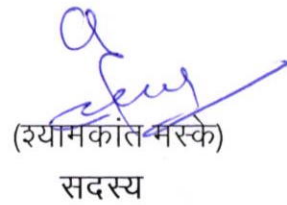 (श्यामकांत मस्के)
सदस्य